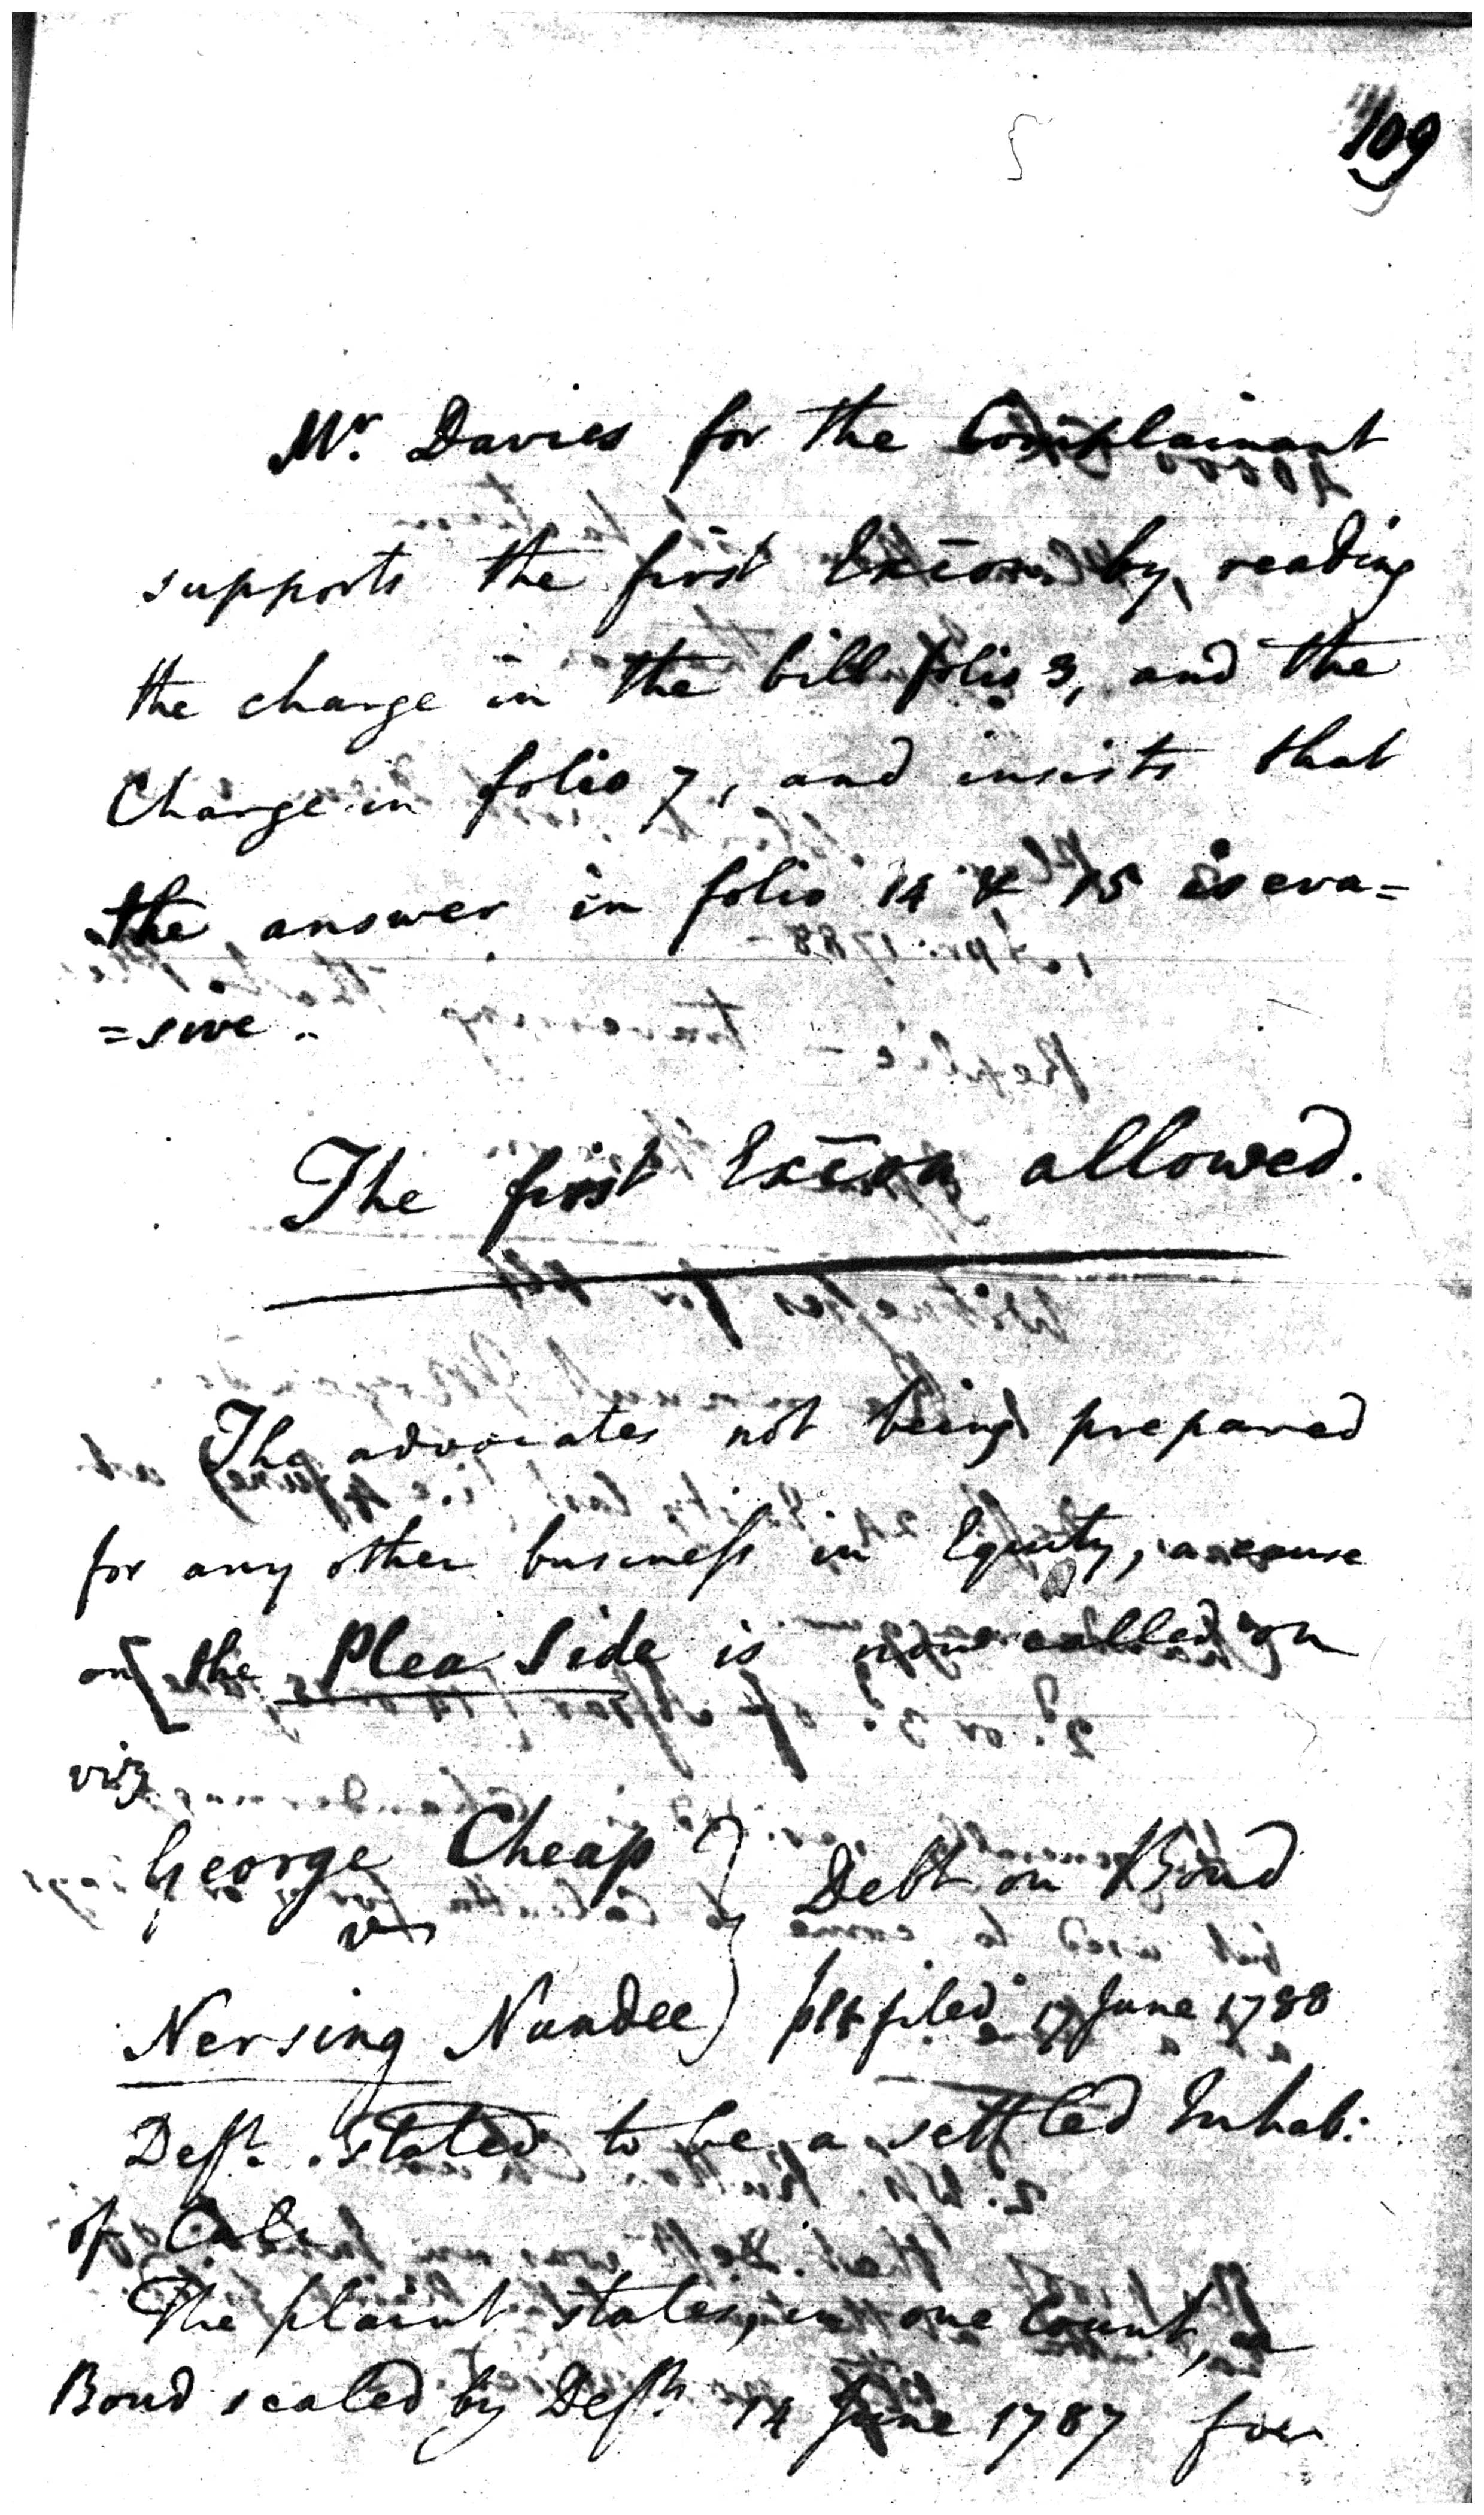 109
Mr. Davies for the Complainant
supports the first Excēon by reading
the charge in the bill folio 3, and the
Charge in folio 7, and insists that
the answer in folio 14 & 15 is eva=
=sive ..
The first Excēon allowed.
The advocates not being prepared
for any other business in Equity, a cause
on [the Plea Side is now called on
viz
George Cheap } Debt on Bond
vs
Nersing Nundee } plt filed 17 June 1788
Deft. stated to be a settled Inhab:
of Calc
The plaint states, in one Count, a
Bond sealed by Deft 14 June 1787 for